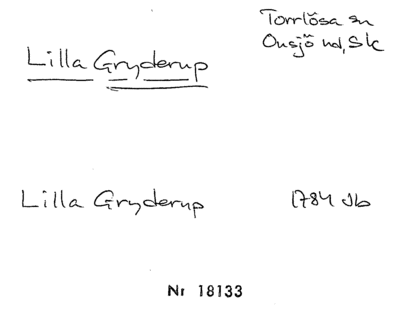 Torrlösa sn
Onsjö hd, Sk
Lilla Gryderup
Lilla Gryderup 1784 Jb
Nr 18133